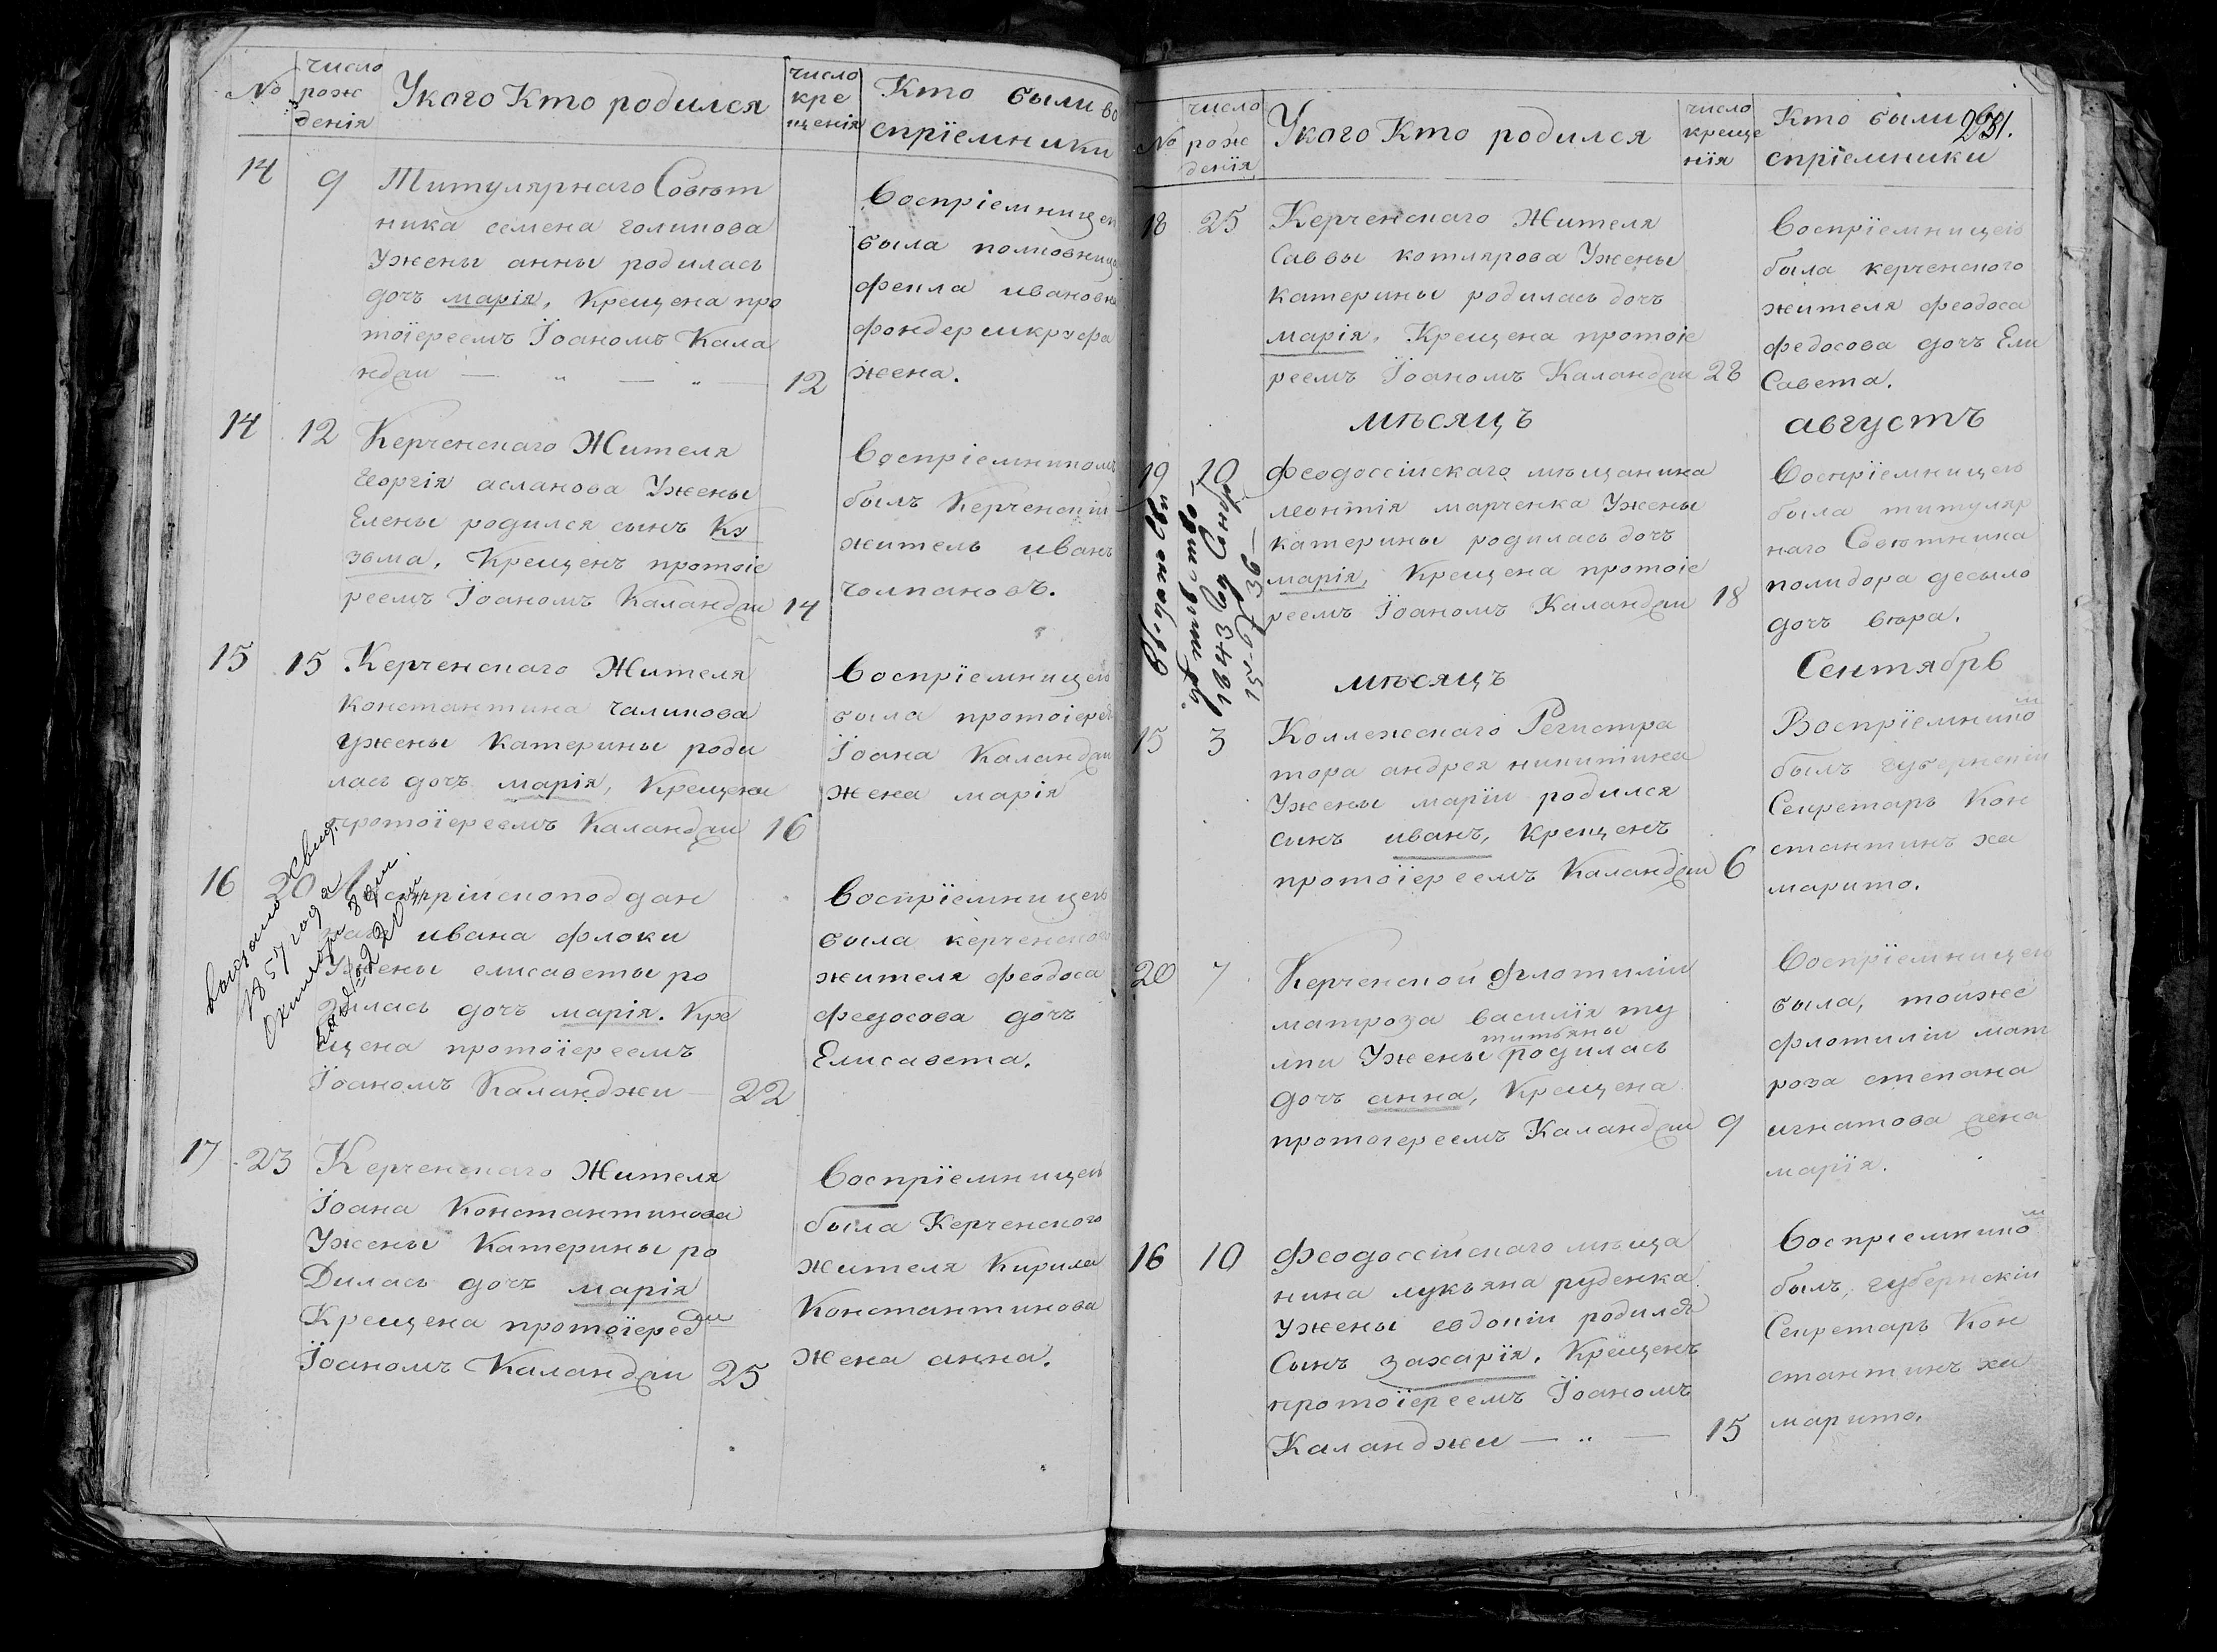 №
число
рож
денія
Укого Кто родился
число
кре
щенія
Кто были во
спріемники
14
9
Титулярнаго Совѣт
ника семена голикова
Ужены анны родилась
дочь марія, Крещена про
тоіереемъ Іоаномъ Кала
нджи — „ — „ —
12
Воспріемницею
была полковница
фекла ивановна
фондершкруфа
жена.
14
12
Керченскаго Жителя
Георгія асланова Ужены
Елены родился сынъ Ко
зьма, Крещенъ протоіе
реемъ Іоаномъ Каланджи
14
Воспріемникомъ
былъ Керченскій
житель иванъ
чолпановъ.
15
15
Керченскаго Жителя
Константина галикова
Ужены Катерины роди
лась дочь марія, Крещена
протоіереемъ Каланджи
16
Воспріемницею
была протоіерея
Іоана Каланджи
жена марія
16
20
Австрійскоподдан
наго ивана флоки
Ужены елисаветы ро
дилась дочь марія. Кре
щена протоіереемъ
Іоаномъ Каланджи —
22
Воспріемницею
была керченского
жителя феодоса
федосова дочь
Елисавета.
1857 года
17
23
Керченскаго Жителя
Іоана Константинова
Ужены Катерины ро
Дилась дочь марія
Крещена протоіерее
Іоаномъ Каланджи
25
Воспріемницею
была Керченского
жителя Кирила
Константинова
жена анна.
№
число
рож
денія
Укого Кто родился
число
креще
нія
Кто были во
спріемники
18
25
Керченскаго Жителя
Саввы котлярова Ужены
катерины родилась дочь
марія, Крещена протоіе
реемъ Іоаномъ Каланджи
28
Воспріемницею
была керченского
жителя феодоса
федосова дочь Ели
Савета.
мѣсяцъ
августъ
19
10
феодоссійскаго мѣщанина
леонтія марченка Ужены
катерины родилась дочь
марія, Крещена протоіе
реемъ Іоаномъ Каланджи
18
Воспріемницею
была титуляр
наго Совѣтника
полидора десыло
дочь вѣра.
мѣсяцъ
Сентябрь
15
3
Коллежскаго Регистра
тора андрея никитина
Ужены маріи родился
сынъ иванъ, Крещенъ
протоіереемъ Каланджи
6
Воспріемнико
м
былъ губернскій
Секретарь Кон
стантинъ ха
марито.
20
7
Керченской флотиліи
матроза василія ту
титьяны
лпи Ужены родилась
дочь анна, Крещена
протоіереемъ Каланджи
9
Воспріемницею
была, тойже
флотиліи мат
роза степана
игнатова жена
марія.
16
10
феодоссійскаго мѣща
нина лукьяна руденка
ужены евдокіи родился
Сынъ захарія, Крещенъ
протоіереемъ Іоаномъ
Каланджи — „ —
15
Воспріемнико
м
былъ, губернскій
Секретарь Кон
стантинъ ха
марито.